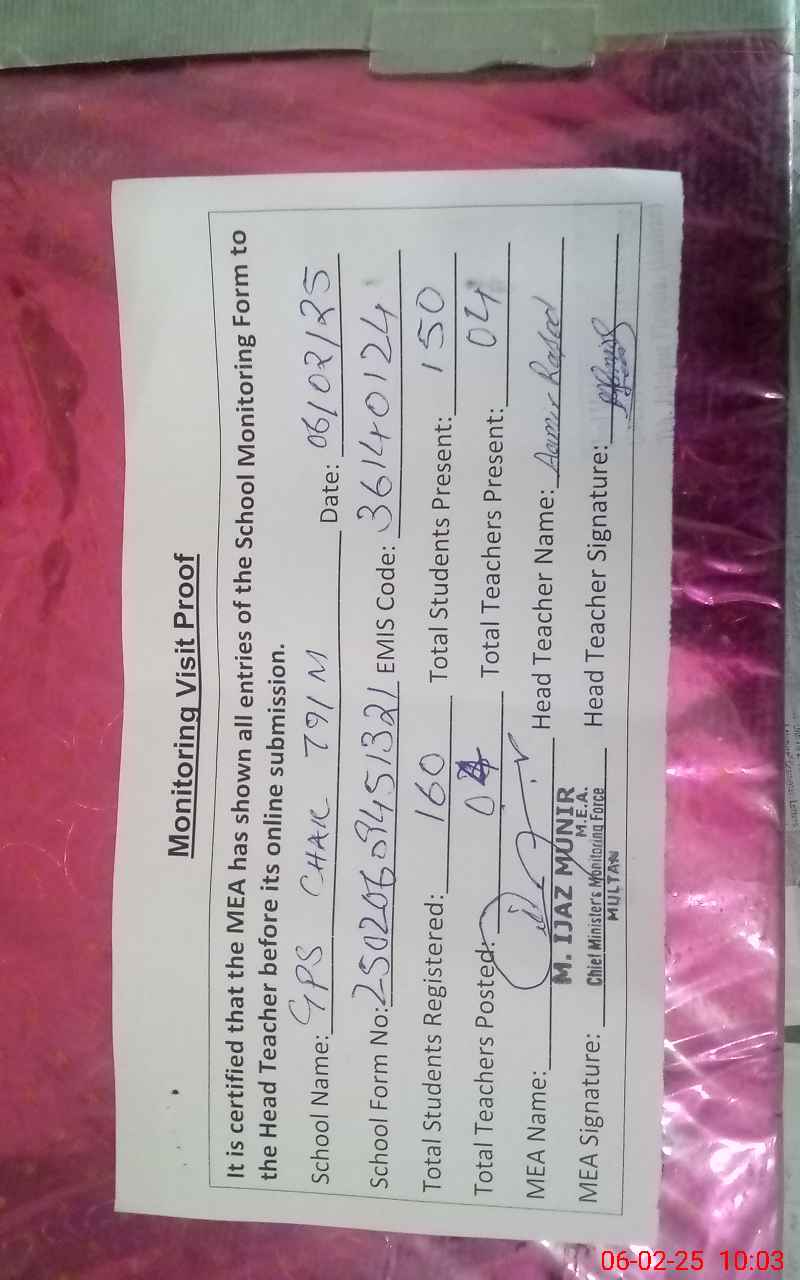 Monitoring Visit Proof
It is certified that the MEA has shown all entries of the School Monitoring Form to
the Head Teacher before its online submission.
School Name: GPS CHAK 791M Date: 06/02/25
School Form No: 25020609451321 EMIS Code: 36140124
Total Students Registered: 160 Total Students Present: 150
Total Teachers Posted: 04 Total Teachers Present: 04
MEA Name: M. IJAZ MUNIR Head Teacher Name: Aamir Rasool
M.E.A.
MEA Signature: Chief Minister's Monitoring Force Head Teacher Signature:
MULTAN
06-02-25 10:03